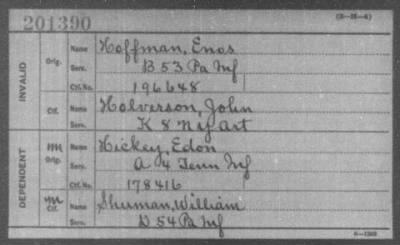 201390
(3-28-6)
INVALID
Orig.
Name Hoffman, Enos
Serv. B 53 Pa Inf
Ctf. No. 196648
Ctf.
Name Halverson, John
Serv. K 8 Ny Art
DEPENDENT
m Orig.
Name Hickey, Edon
Serv. A 4 Tenn Inf
Ctf. No. 178416
m Ctf.
Name Shuman, William
Serv. D 54 Pa Inf